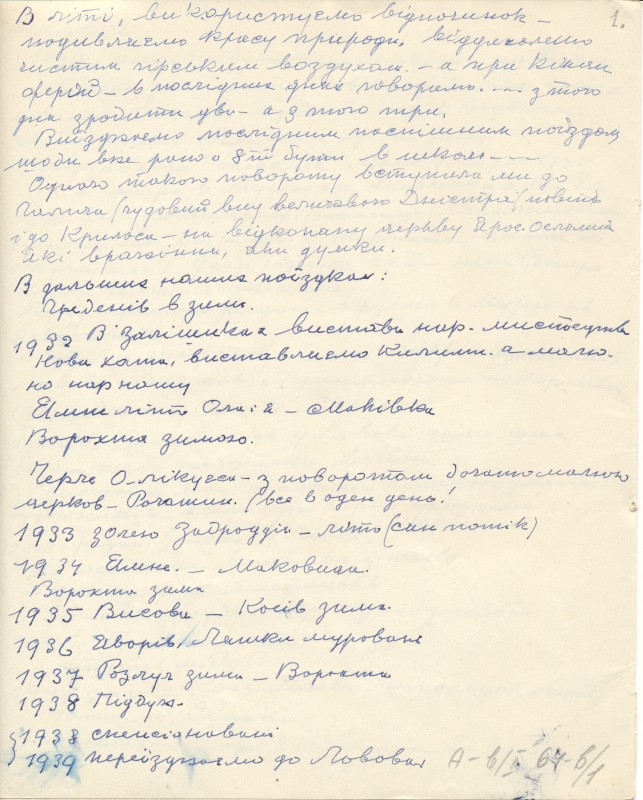 1.
В літі, використуємо відпочинок –
подивляємо красу природи, віддихаємо
чистим гірським воздухом. – а при кінци
ферій – в послідних днях говоримо. – з того
дня зробити два – а з того три.
Виїзджаємо послідним поспішним поїздом
щоби вже рано о 8ій бути в школі – –
Одного такого повороту вступили ми до
Галича (чудовий вид величавого Дністра)
і до Крилоса – на відкопану церкву Ярос. Осмомисла
які вражіння, які думки.
В дальших наших поїздках:
Гребенів в зимі.
1932 В Заліщиках вистава нар. мистецтва
Нова хата, виставляємо килими. а
на нар ношу
Ямне літо Оля і я – Маківка
Ворохта зимою.
Черче О. лікуєся – з поворотом
церков – Рогатин. (все в оден день!
1933 з Олею – літо (
1934 Ямне. – Маковиця.
Ворохта зима
1935 Висова – Косів зима.
1936 Яворів, Лашки муровані
1937 Розлуч зима – Ворохта
1938 Підбуж.
1938 спенсіоновані
1939 переїзджаємо до Львова
А-в/І 64-в/1